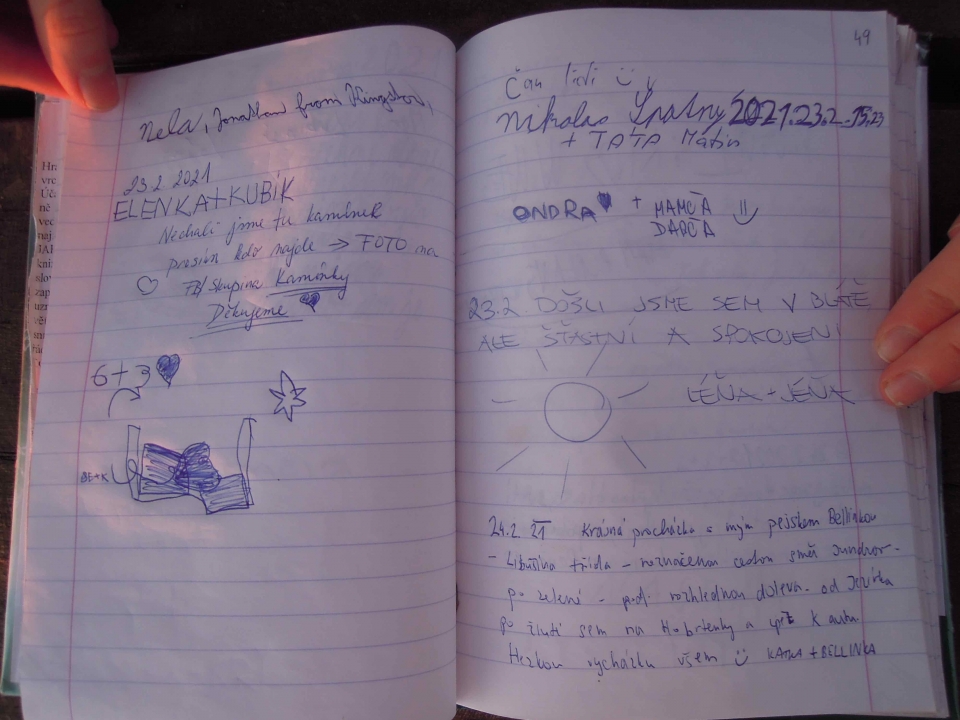 Nela, Jonathan from Kingston,
23.2 2021
ELENKA+KUBÍK
Nechali jsme tu kamínek
prosím kdo najde → FOTO na
FB/skupina Kamínky
Děkujeme
6+3
BE+K
49
Čau lidi
Nikolas 2021.23.2. 15:23
+ TATA
ONDRA + MAMČA
DARČA
23.2. DOŠLI JSME SEM V BLÁTĚ
ALE ŠŤASTNÍ A SPOKOJENÍ
LÉŇA + JÉŇA
24.2. 21 Krásná procházka s mým pejskem Bellinkou
- Libušina třída - neznačenou cestou směr Jundrov -
po zelené - pod rozhlednou doleva. od Jezírka
po žluté sem na Hobrtenky a zpět k autu.
Hezkou vycházku všem KATKA + BELLINKA